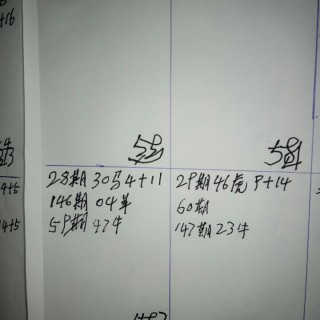 +16
28期 30马 4+11
146期 04羊
59期 47牛
29期 46虎 9+14
60期
147期 23牛
4+5
4+5